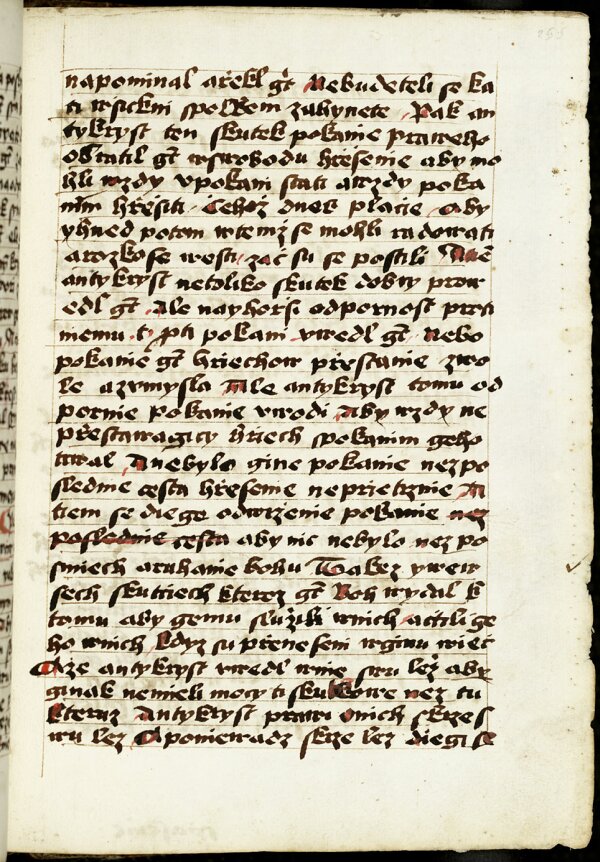 napominal a řekl gt Nebudeteli se ka
ti wsickni spolkem zahynete Pak an
tykryst ten skutek pokanie praweho
obratil gt w swobodu hřešenie aby mo
hli wzdy v pokani stati a wzdy poka
nim hřešiti Čehoz dnes placie Aby
yhned potom w temz se mohli radowati
a rozkose westi zač su se postili
antykryst netoliko skutek dobry prow
edl gt Ale nayhorsi odpornost proti
niemu ti pti pokani vwedl gt Nebo
pokanie gt hriechow přestanie zwo
le a z vmysla Ale antykryst tomu od
pornie pokanie vwodi Aby wzdy ne
přestawagicy hřiech spokanim geho
trwal A nebylo gine pokanie nez po
slednie cesta hřesenie neprietrznie A
tiem se diege odwrzenie pokanie nez
poslednie cesta aby nic nebylo nez po
smiech a ruhanie bohu Takez y wew
sech skutciech kterez gt Boh wydal k
tomu aby gemu sluzili w nich a ctili ge
ho w nich kdyz su přeneseni w ginu wiec
A ze antykryst vwedl w nie swu lež aby
ginak nemieli mocy ti skutkowe nez tu
kteruz Antykryst prawi o nich skrze s
wu lez A poniewadz skrze lez diegi se